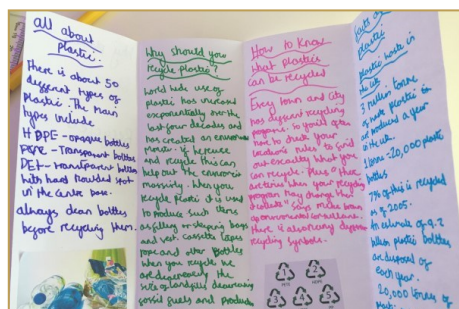 all about
plastic.
There is about 50
different types of
Plastic. The main
types include
HDPE - opaque bottles
- Transparent bottles
- transparent bottles
with hard moulded spot
in the centre base.
always clean bottles
before recycling them.
Why should you
recycle plastic?
world wide use of
plastic has increased
exponentially over the
last four decades and
has created an
. if we reuse
and recycle this can
help out the
massivly. When you
recycle plastic it is used
to produce such items
as filling or sleeping bags
and vest. Cassette tapes
and other Bottles
when you recycle we
are the
of landfills decreasing
fossil fuels and
How to know
what plastics
can be recycled
Every town and city
has different recycling
programs. So you'd often
have to check your
locations rules to find
out exactly what you
can recycle. Plus "there
are times when your recycling
program may change their
" says
environmental consultant.
there is also many different
recycling symbols.
1 2
PETE HDPE
3 4 5
facts of
plastic
plastic waste in
the uk.
3 million tonne
of waste plastic is
produced a year
in the uk.
1 tonne = 20,000 plastic
bottles
7% of this is recycled
as of 2005.
an estimate of 9.2
billion plastic bottles
are disposal of
each year.
20,000 tonnes of